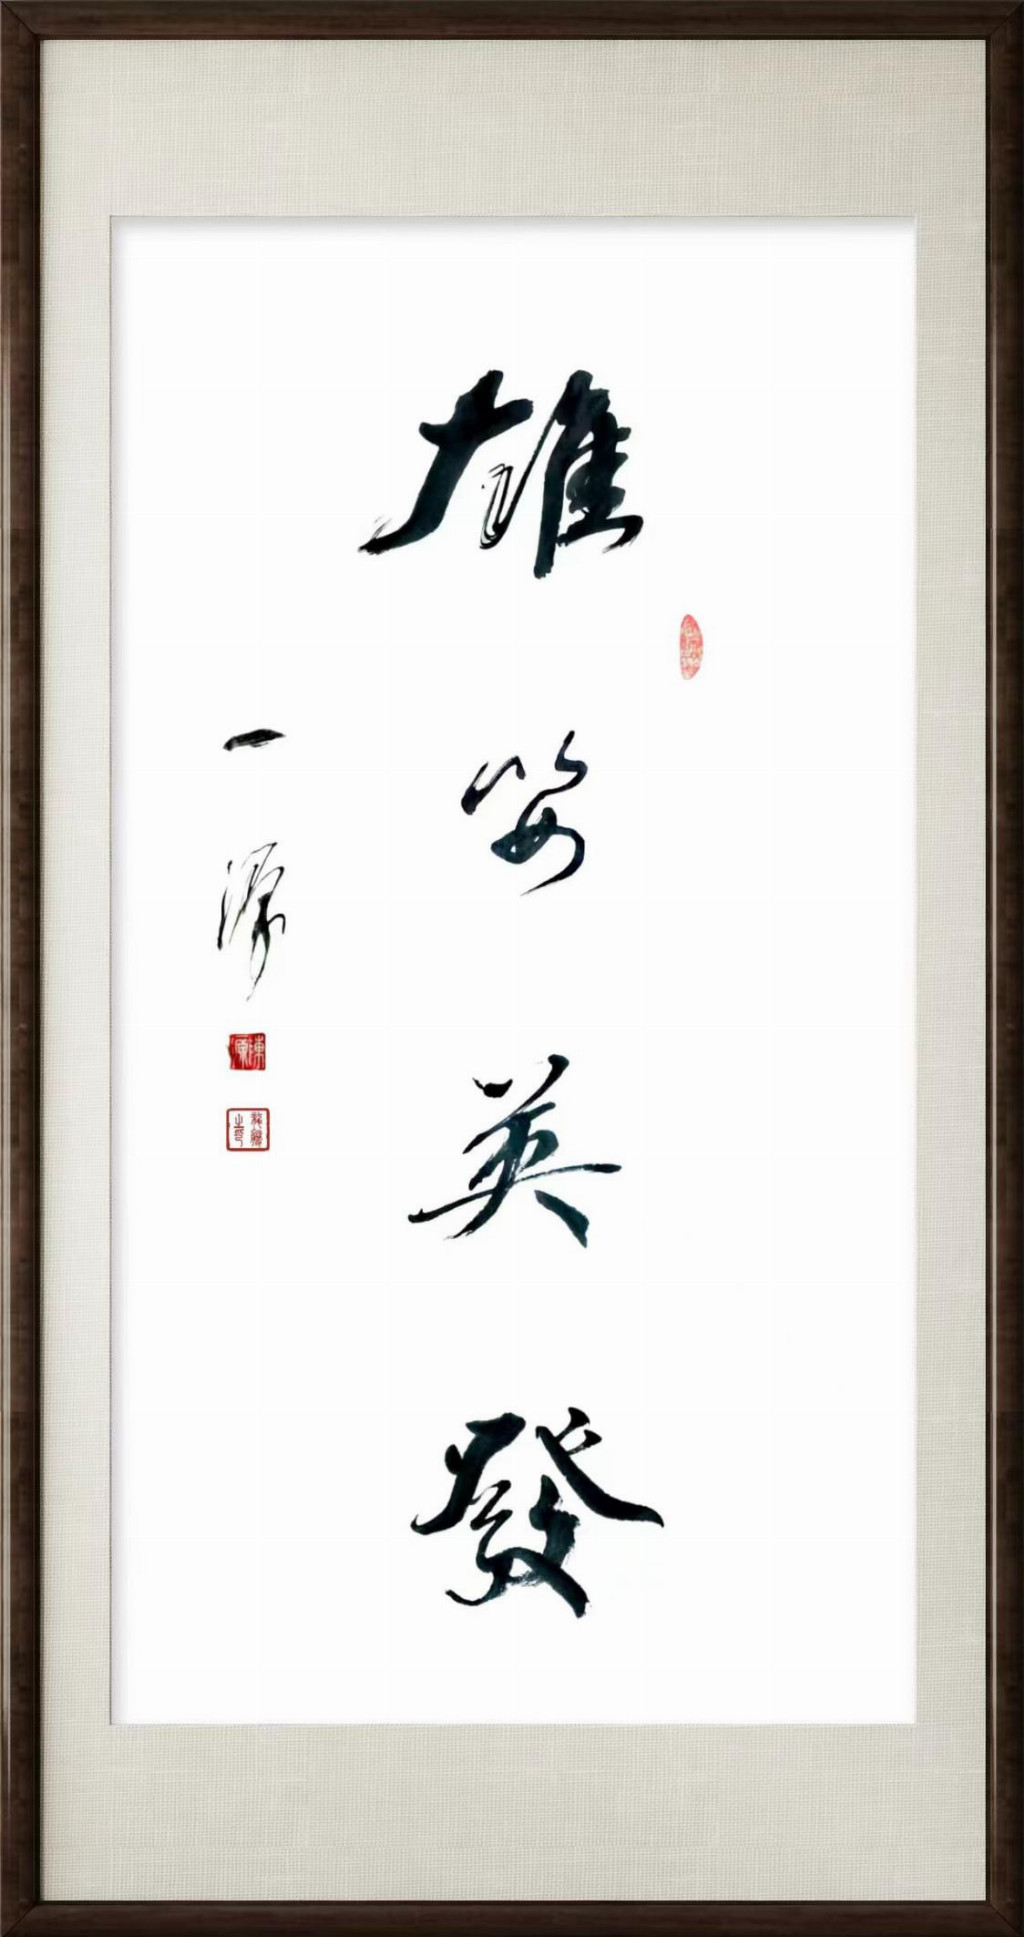 雄姿英發
一源